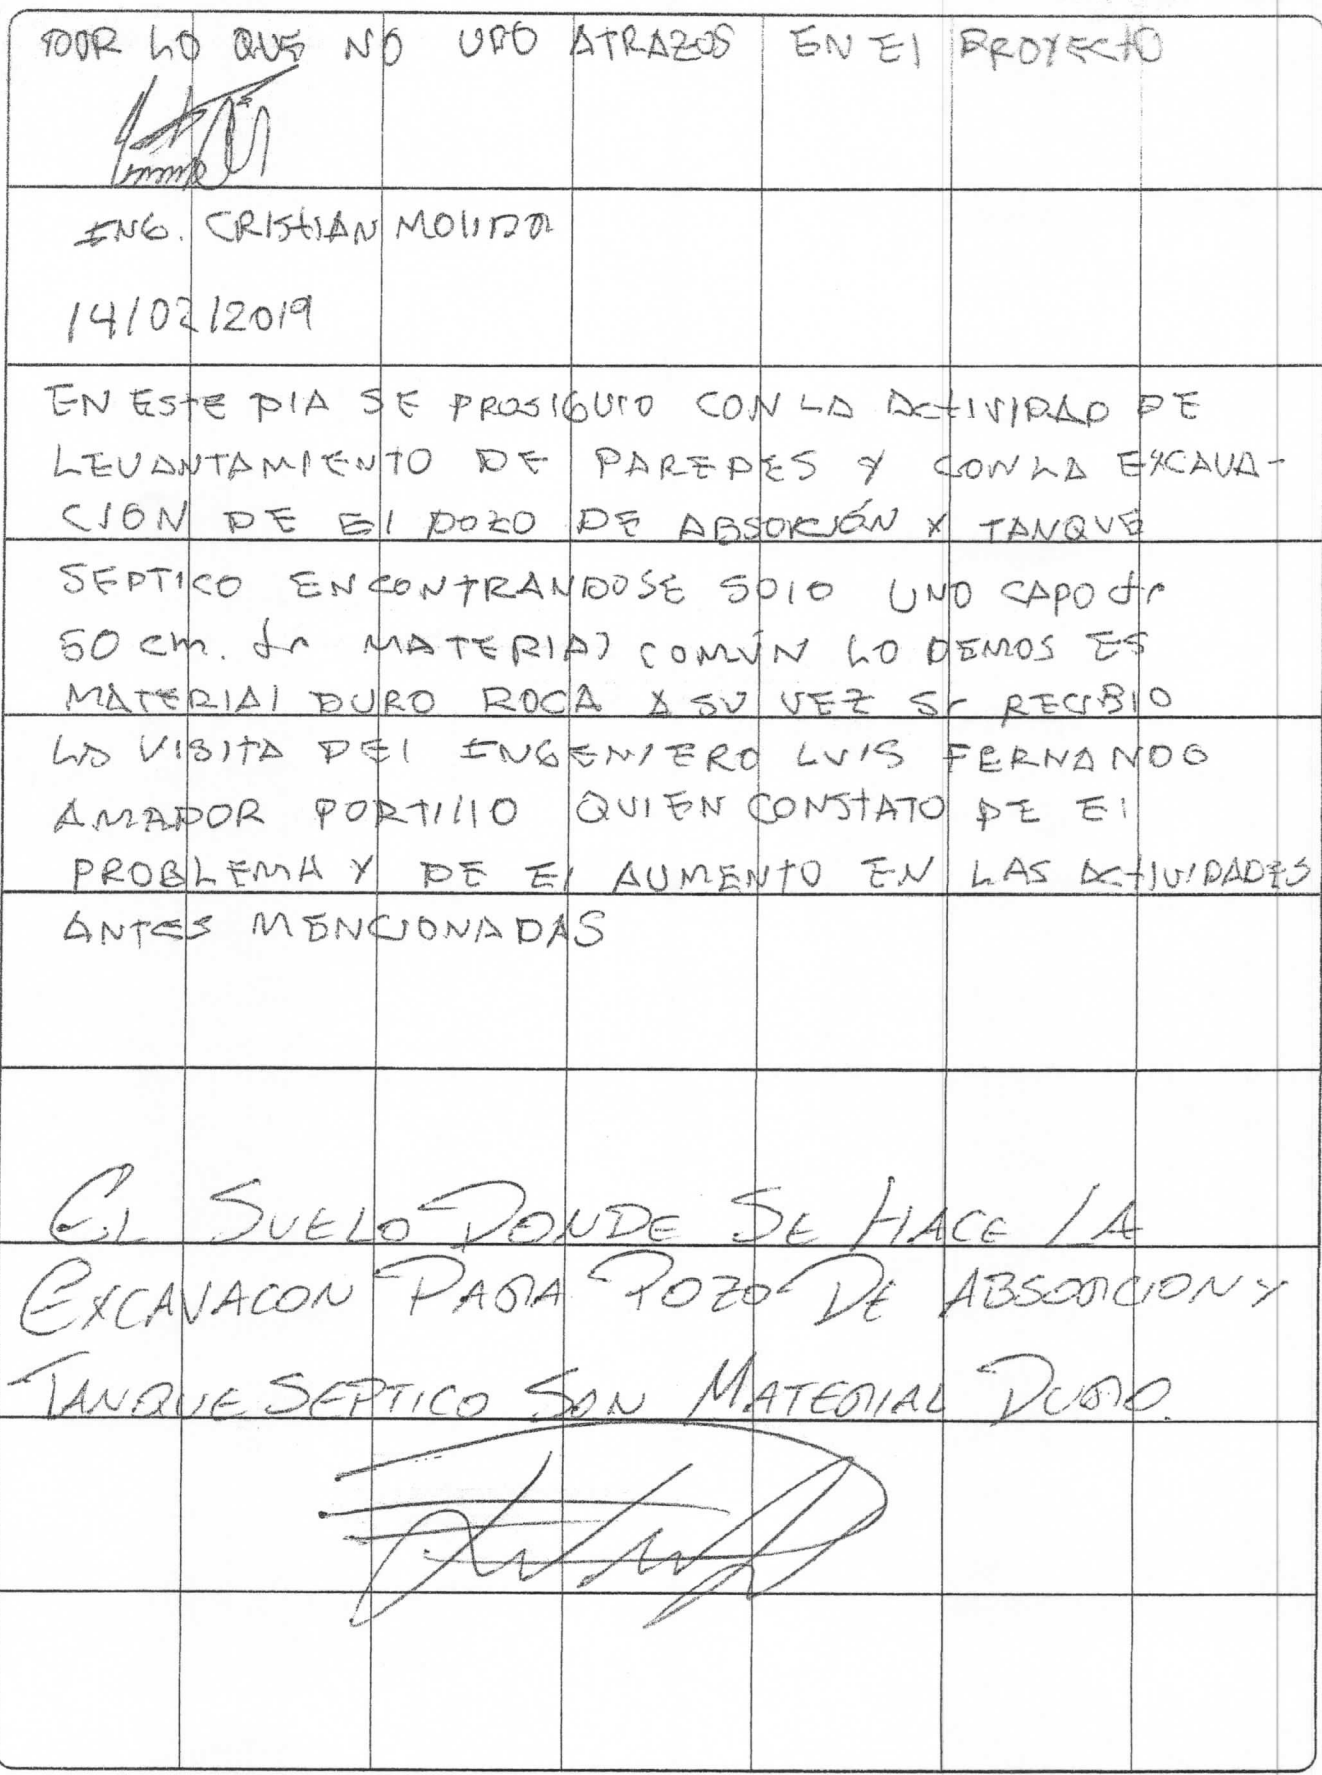 POR LO QUE NO UBO ATRAZOS EN El PROYECTO
ING. CRISTIAN MOLINA
14/02/2019
EN ESTE DIA SE PROSIGUIO CON LA ACTIVIDAD DE
LEVANTAMIENTO DE PAREDES Y CON LA EXCAVA-
CION DE El POZO DE ABSORCIÓN Y TANQUE
SEPTICO ENCONTRANDOSE SOLO UNA CAPA de
50 cm. de MATERIAL COMÚN LO DEMAS ES
MATERIAL DURO ROCA A SU VEZ Se RECIBIO
LA VISITA DEL INGENIERO LUIS FERNANDO
AMADOR PORTILLO QUIEN CONSTATO DE El
PROBLEMA Y DE El AUMENTO EN LAS ACTIVIDADES
ANTES MENCIONADAS
EL SUELO DONDE SE HACE LA
EXCAVACON PARA POZO DE ABSORCION Y
TANQUE SEPTICO SON MATERIAL DURO.